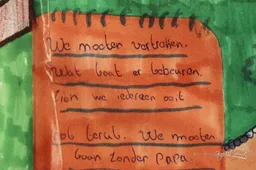 We moeten vertrekken.
Wat gaat er gebeuren.
Zien we iedereen ooit
terug. We moeten
Gaan zonder papa